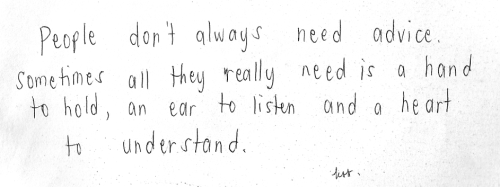 People don't always need advice.
Sometimes all they really need is a hand
to hold, an ear to listen and a heart
to understand.